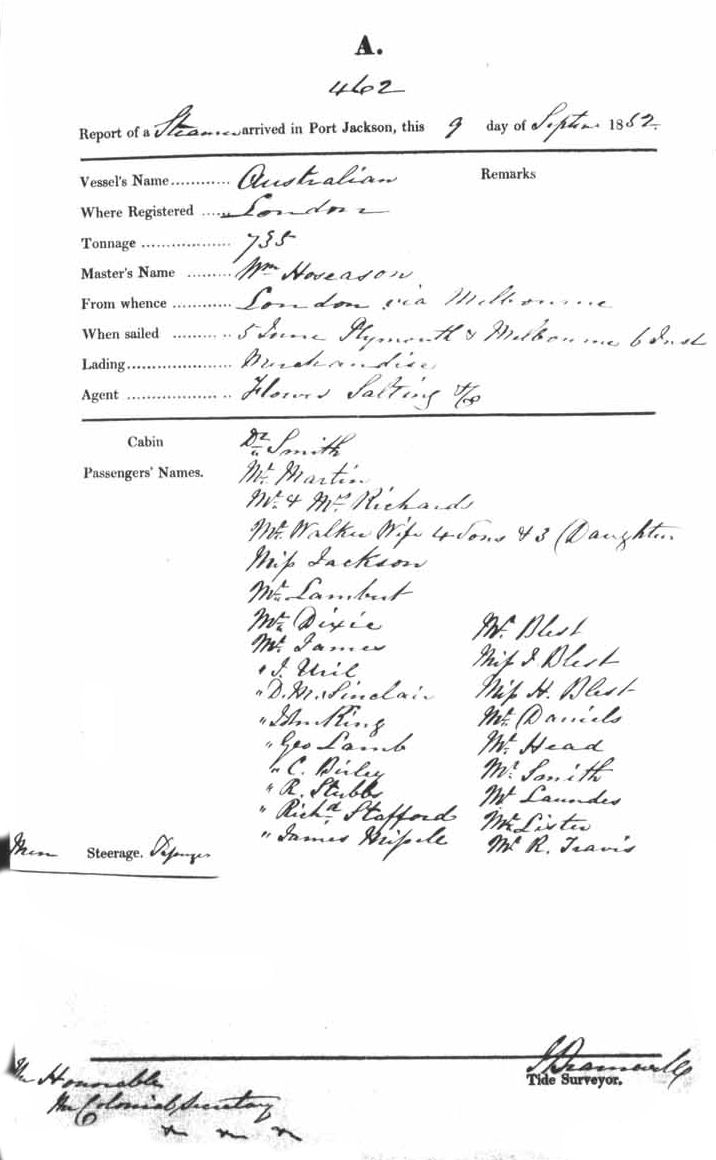 A.
462
Report of a Steamer arrived in Port Jackson, this 9 day of Septem 1852.
Vessel's Name ............ Australian Remarks
Where Registered ....... London
Tonnage .................. 735
Master's Name ......... Wm Hoseason
From whence ............ London via Melbourne
When sailed ......... .. 5 June Plymouth & Melbourne 6 Inst
Lading..................... Merchandise
Agent .................. .. Flower Salting & Co
Cabin
Passengers' Names.
Dr Smith
Mr. Martin
Mr. & Mrs Richards
Mr. Walker Wife 4 Sons & 3 Daughters
Miss Jackson
Mr. Lambert
Mr. Dixie
Mr. James
" J.
" D. M. Sinclair
" John King
" Geo Lamb
" C.
" R. Stubbs
" Richd Stafford
" James
Mr. Blest
Miss J Blest
Miss H. Blest
Mr. Daniels
Mr. Head
Mr. Smith
Mr Laundes
Mr. Lister
Mr R. Travis
Steerage.
Tide Surveyor.
The Honorable
The Colonial Secretary